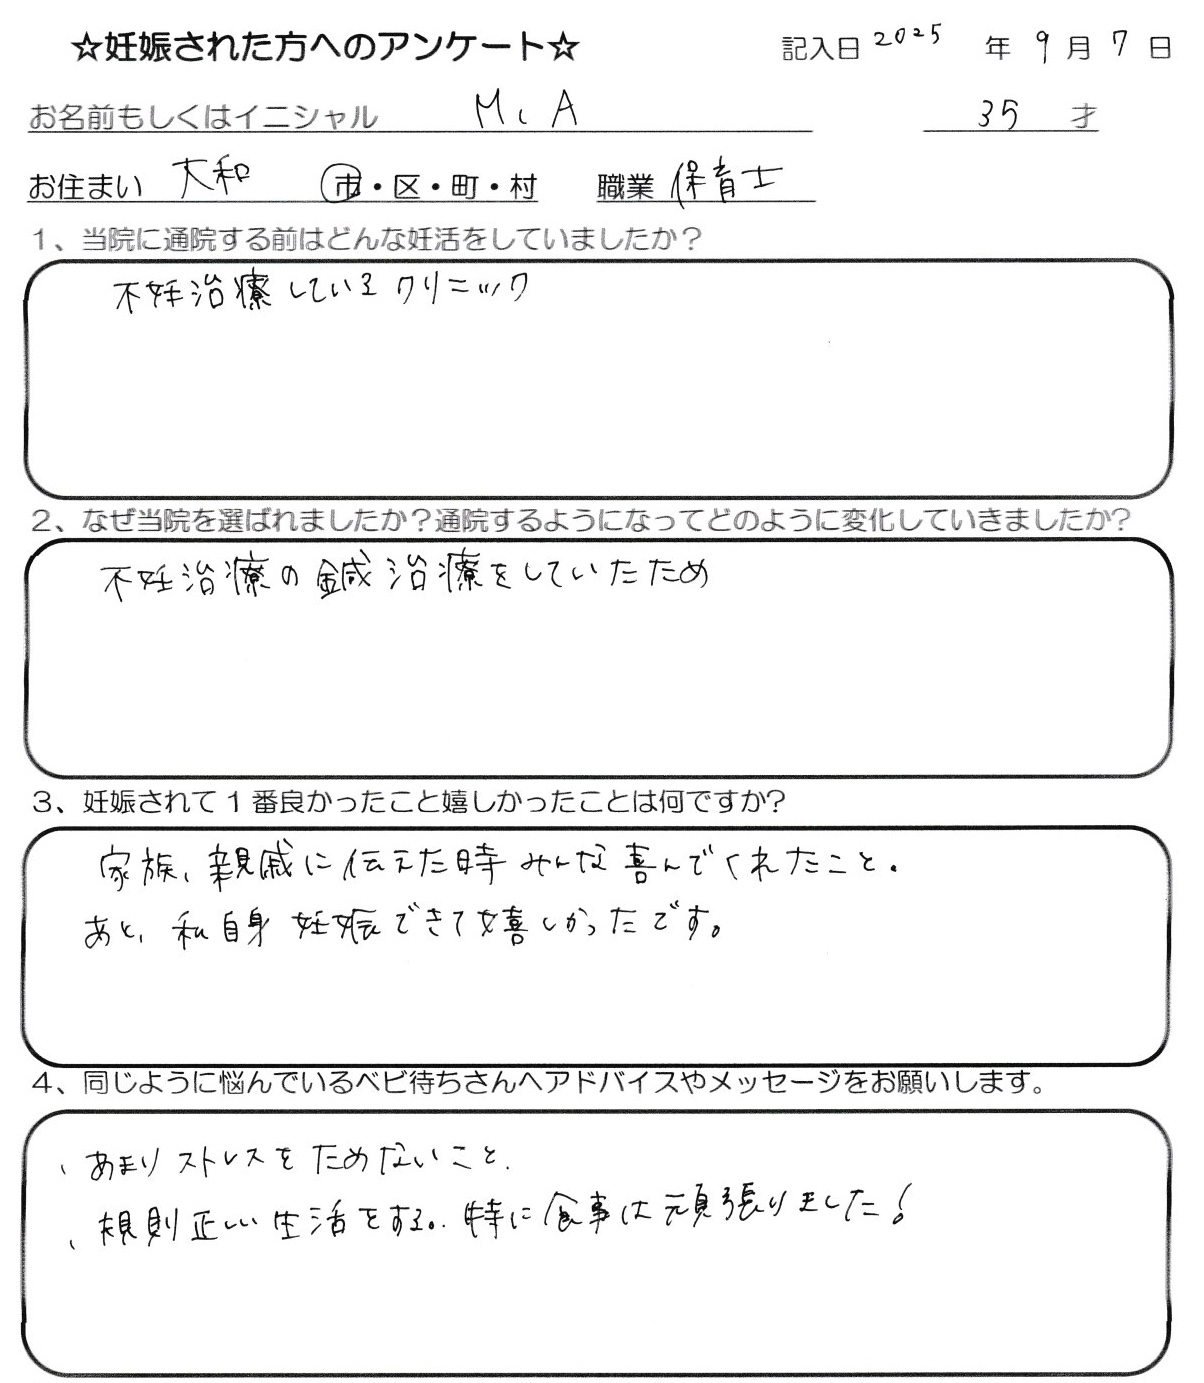 ☆妊娠された方へのアンケート☆ 記入日 2025 年 9 月 7 日
お名前もしくはイニシャル M、A 35 才
お住まい 大和 市・区・町・村 職業 保育士
1、当院に通院する前はどんな妊活をしていましたか？
不妊治療しているクリニック
2、なぜ当院を選ばれましたか？通院するようになってどのように変化していきましたか?
不妊治療の鍼治療をしていたため
3、妊娠されて1番良かったこと嬉しかったことは何ですか?
家族、親戚に伝えた時みんな喜んでくれたこと。
あと、私自身妊娠できて嬉しかったです。
4、同じように悩んでいるベビ待ちさんへアドバイスやメッセージをお願いします。
、あまりストレスをためないこと.
、規則正しい生活をする。特に食事は頑張りました!